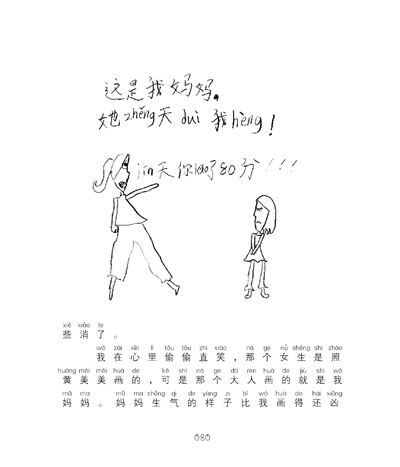 这是我妈妈。
她zhěng天duì我hèng！
jīn天你kǎo了80分！！！
xiē xiāo le
些消了。
wǒ zài xīn lǐ tōu tōu zhí xiào nà ge nǚ shēng shì zhào
我在心里偷偷直笑，那个女生是照
huáng měi měi huà de kě shì nà ge dà ren huà de jiù shì wǒ
黄美美画的，可是那个大人画的就是我
mā ma mā ma shēng qì de yàng zi bǐ wǒ huà de hái xiōng
妈妈。妈妈生气的样子比我画得还凶
080